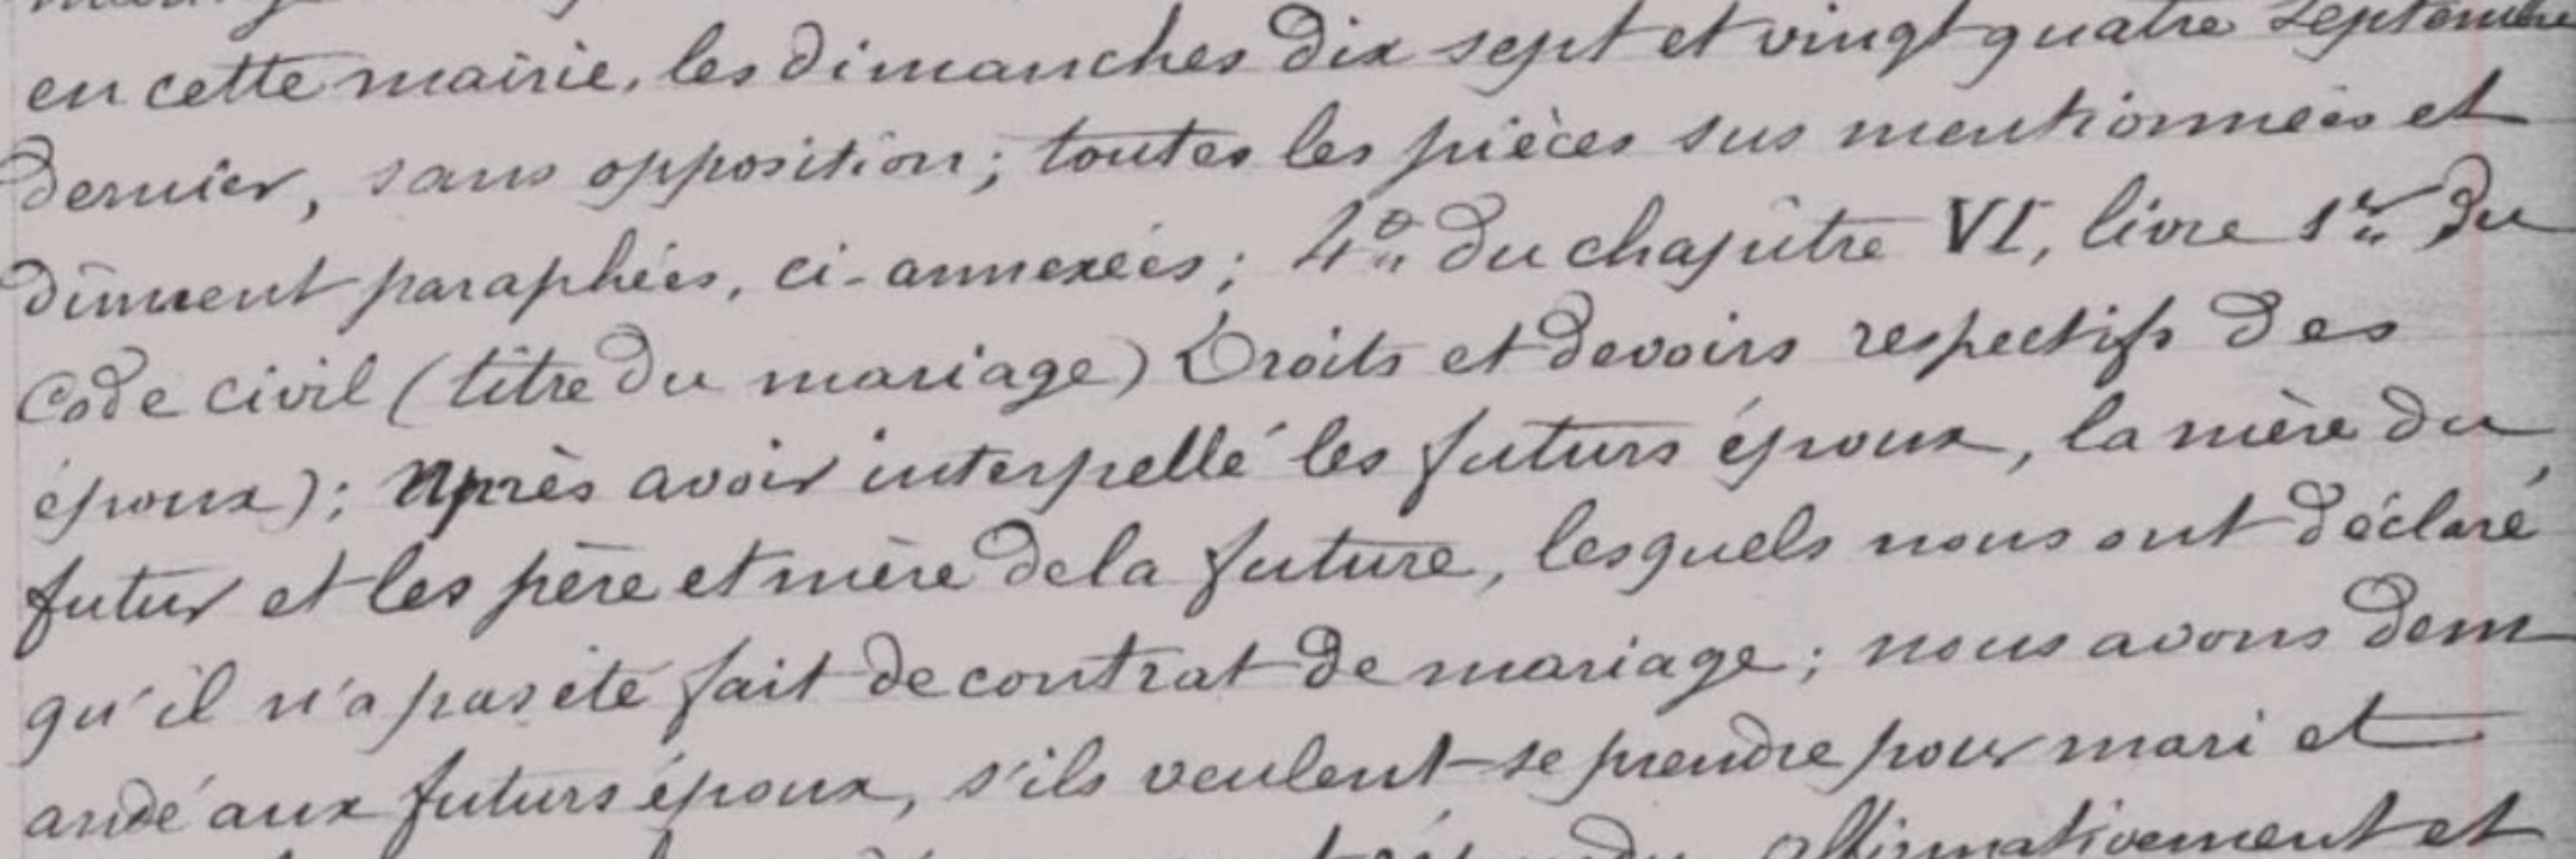 en cette mairie, les dimanches dix sept et vingt quatre Septembre
dernier, sans opposition; toutes les pièces sus mentionnées et
dûment paraphées, ci-annexées; 4º du chapître VI, livre 1er du
Code civil (titre du mariage) Droits et devoirs respectifs des
époux); Après avoir interpellé les futurs époux, la mère du
futur et les père et mère de la future, lesquels nous ont déclaré
qu'il n'a pas été fait de contrat de mariage; nous avons dem
andé aux futurs époux, s'ils veulent se prendre pour mari et
affirmativement et